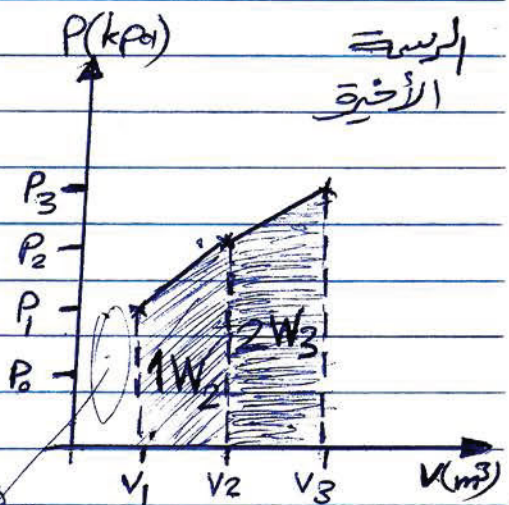 P(kpa)
الرسمة
الأخيرة
P₃
P₂
P₁
P₀
1W₂
2W₃
V₁
V₂
V₃
V(m³)